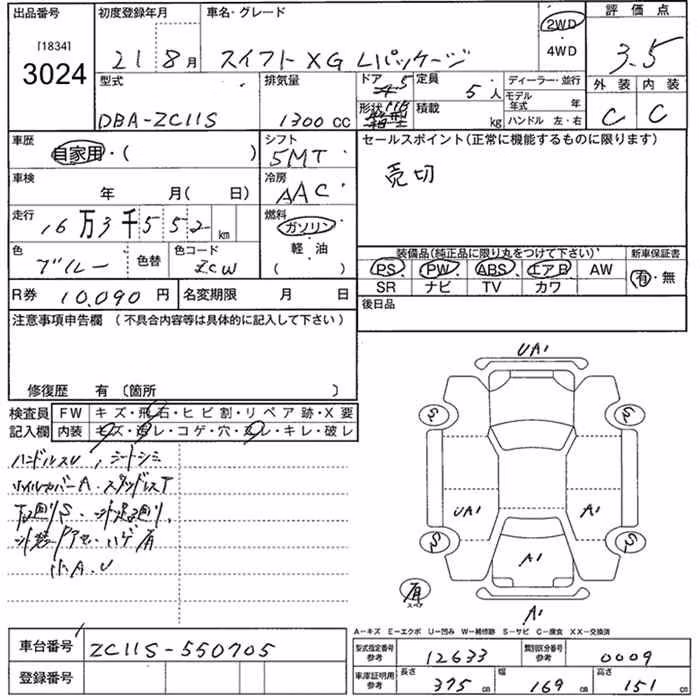 出品番号
[1834]
3024
初度登録年月
21 8月
車名・グレード
スイフト XG Lパッケージ
2WD
4WD
評価点
3.5
型式
DBA-ZC11S
排気量
1300 CC
ドア
5
形状
定員
5人
積載
kg
ディーラー・並行
モデル年式 年
ハンドル 左・右
外装 内装
C C
車歴
自家用・( )
シフト
5MT
車検
年 月( 日)
冷房
AAC
走行
16万3千552km
燃料
ガソリン
軽・油
( )
色
ブルー
色替
色コード
ZCW
R券 10,090円
名変期限 月 日
セールスポイント(正常に機能するものに限ります)
売切
装備品(純正品に限り丸をつけて下さい)
新車保証書
PS PW ABS エアB AW
有・無
SR ナビ TV カワ
後日品
注意事項申告欄 (不具合内容等は具体的に記入して下さい)
修復歴 有〔箇所 〕
検査員記入欄
FW キズ・飛石・ヒビ割・リペア跡・X要
内装 キズ・コゲ・穴・キレ・破レ
ハンドルスレ, シートシミ
ホイルカバーA. スタッドレスT
下廻りS.
ハゲ有
小A.U
UA1
S
S
UA1
A1
S
S
A1
有
スペア
A1
A-キズ E-エクボ U-凹み W-補修跡 S-サビ C-腐食 XX-交換済
車台番号
ZC11S-550705
登録番号
型式指定番号 参考
12633
類別区分番号 参考
0009
車庫証明用 参考
長さ 375cm
幅 169cm
高さ 151cm